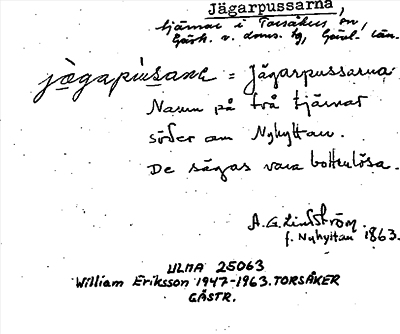 Jägarpussarna,
tjärnar i Torsåkers sn,
Gästr. v. doms. tg, Gävl. län.
jägapusanɐ = Jägarpussarna
Namn på två tjärnar
söder om Nyhyttan.
De sägas vara bottenlösa.
A.G. Lindström
f. Nyhyttan 1863.
ULMA 25063
William Eriksson 1947-1963. TORSÅKER
GÄSTR.